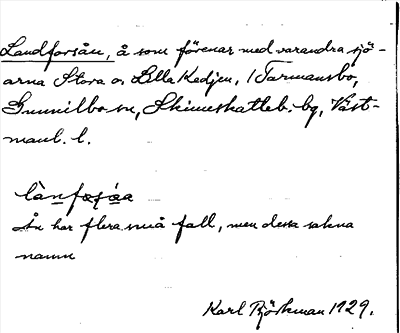 Landforsån, å som förenar med varandra sjö-
arna Stora o. Lilla Kedjen, i Farmansbo,
Gunnilbo sn, Skinnskatteb. bg, Väst-
manl. l.
Ån har flera små fall, men dessa sakna
namn
Karl Björkman 1929.